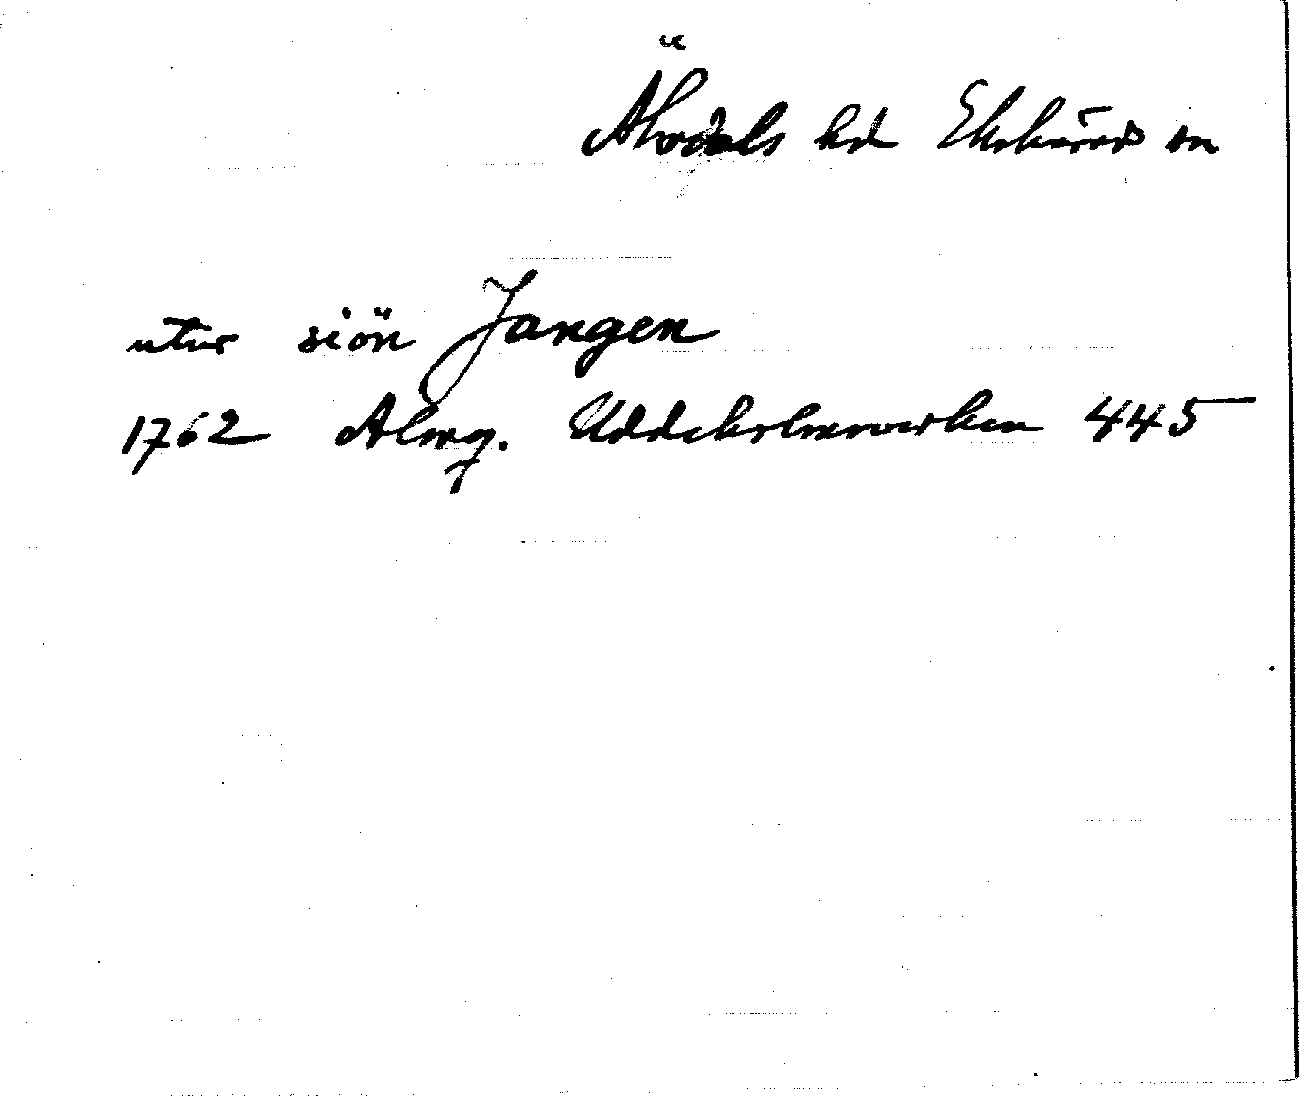 Älvdals hd Ekshärad sn
utur siön Jangen
1762 Almg. Uddeholmsverken 445